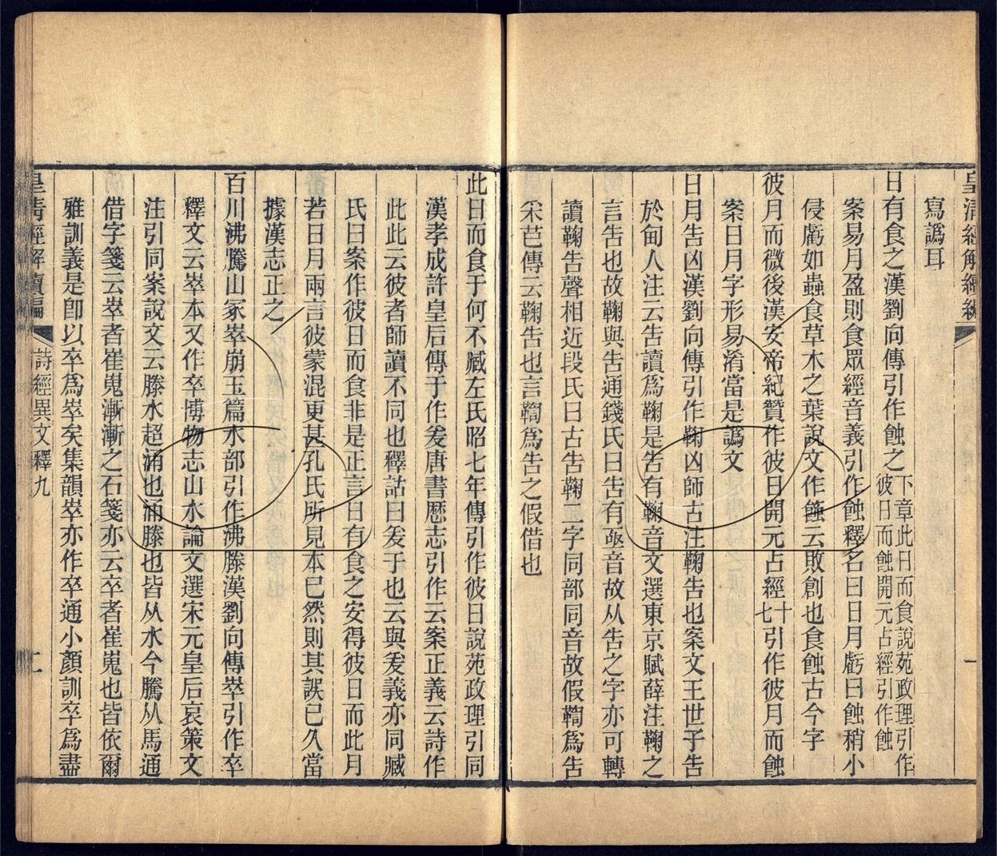 皇清經解續編
寫譌耳
日有食之漢劉向傳引作蝕之下章此日而食說苑政理引作彼日而蝕開元占經引作蝕
案易月盈則食眾經音義引作蝕釋名曰日月虧曰蝕稍小
侵虧如蟲食草木之葉說文作𧌒云敗創也食蝕古今字
彼月而微後漢安帝紀贊作彼日開元占經十七引作彼月而蝕
案日月字形易淆當是譌文
日月告凶漢劉向傳引作鞠凶師古注鞠告也案文王世子告
於甸人注云告讀爲鞠是告有鞠音文選東京賦薛注鞠之
言告也故鞠與告通錢氏曰告有亟音故从告之字亦可轉
讀鞠告聲相近段氏曰古告鞠二字同部同音故假鞫爲告
采芑傳云鞠告也言鞫爲告之假借也
一
此日而食于何不臧左氏昭七年傳引作彼日說苑政理引同
漢孝成許皇后傳于作爰唐書厯志引作云案正義云詩作
此此云彼者師讀不同也釋詁曰爰于也云與爰義亦同臧
氏曰案作彼日而食非是正言日有食之安得彼日而此月
若日月兩言彼蒙混更甚孔氏所見本已然則其誤已久當
據漢志正之
百川沸騰山冢崒崩玉篇水部引作沸滕漢劉向傳崒引作卒
釋文云崒本又作卒博物志山水論文選宋元皇后哀策文
注引同案說文云滕水超涌也涌滕也皆从水今騰从馬通
借字箋云崒者崔嵬漸漸之石箋亦云卒者崔嵬也皆依爾
雅訓義是卽以卒爲崒矣集韻崒亦作卒通小顏訓卒爲盡
皇清經解續編
詩經異文釋九
二